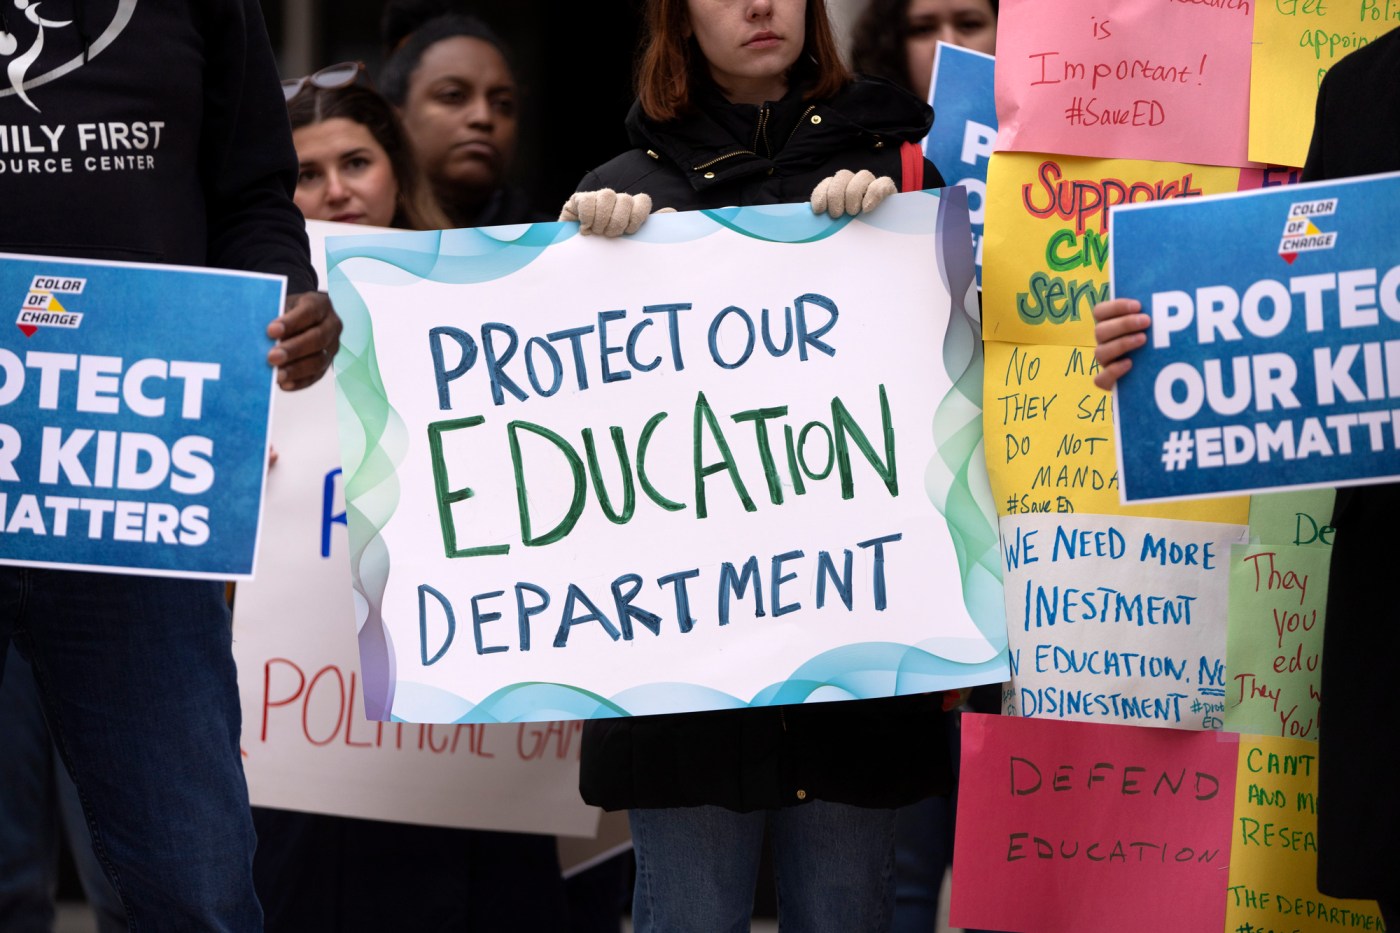 MILY FIRST
SOURCE CENTER
COLOR
OF
CHANGE
OTECT
R KIDS
MATTERS
POLITICAL GAM
PROTECT OUR
EDUCATION
DEPARTMENT
is
Important!
#SaveED
Get Poli
appoin
Support
Civ
Serv
NO MA
THEY SA
DO NOT
MANDA
#Save ED
WE NEED MORE
INESTMENT
N EDUCATION. NO
DISINESTMENT
De
They
you
edu
They w
You!
DEFEND
EDUCATION
CAN'T
AND M
RESEA
THE DEPARTMEN
COLOR
OF
CHANGE
PROTEC
OUR KI
#EDMATT